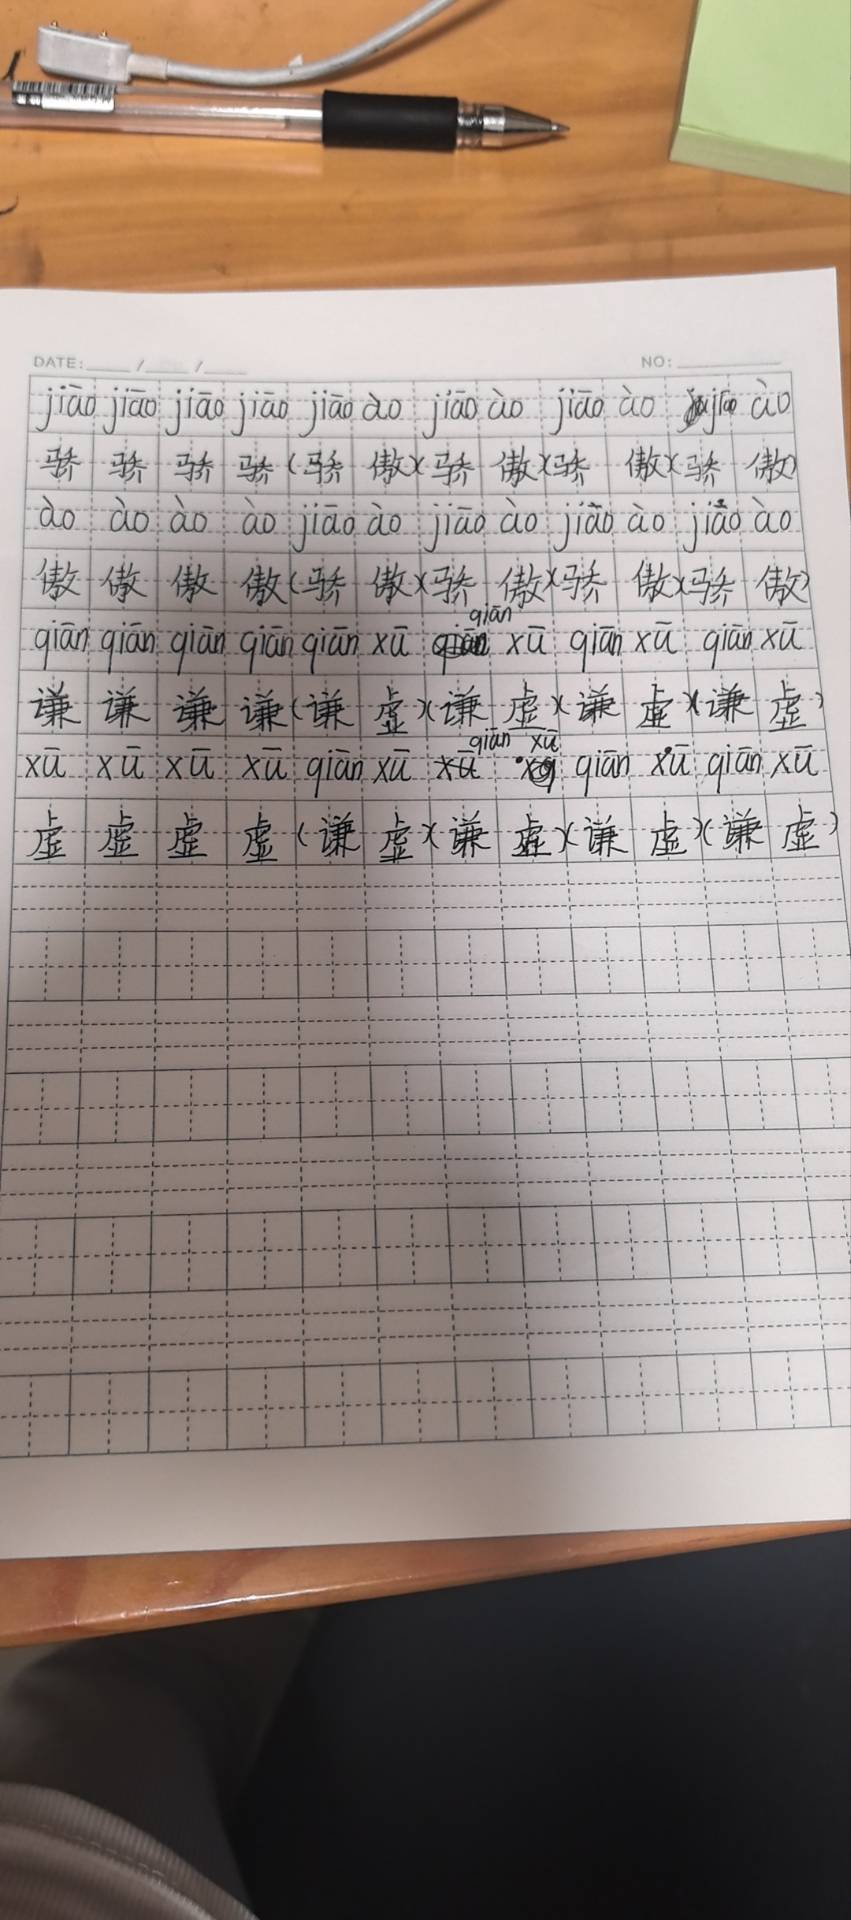 DATE: / / NO:
jiāo jiāo jiāo jiāo jiāo ào jiāo ào jiāo ào jiāo ào
骄 骄 骄 骄 (骄 傲)(骄 傲)(骄 傲)(骄 傲)
ào ào ào ào jiāo ào jiāo ào jiāo ào jiāo ào
傲 傲 傲 傲 (骄 傲)(骄 傲)(骄 傲)(骄 傲)
qiān qiān qiān qiān qiān xū qiān xū qiān xū qiān xū
谦 谦 谦 谦 (谦 虚)(谦 虚)(谦 虚)(谦 虚)
xū xū xū xū qiān xū qiān xū qiān xū qiān xū
虚 虚 虚 虚 (谦 虚)(谦 虚)(谦 虚)(谦 虚)